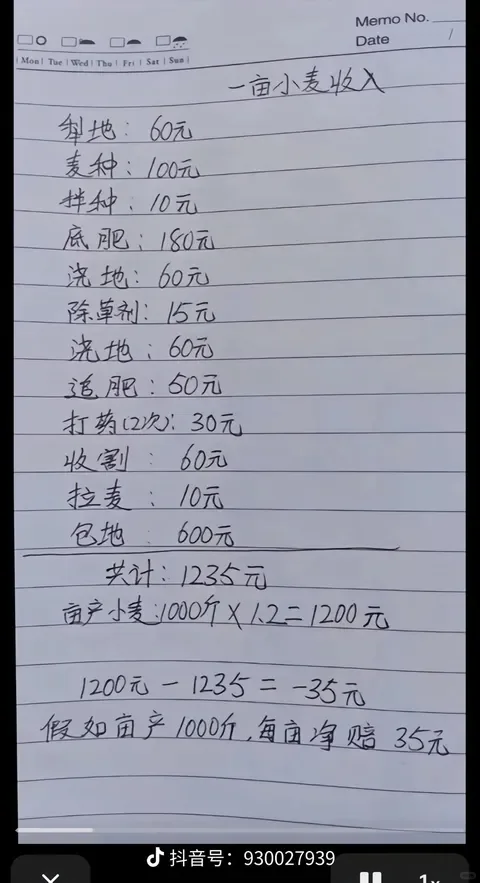 Memo No.
Date /
Mon Tue Wed Thu Fri Sat Sun
一亩小麦收入
犁地：60元
麦种：100元
拌种：10元
底肥：180元
浇地：60元
除草剂：15元
浇地：60元
追肥：50元
打药(2次)：30元
收割：60元
拉麦：10元
包地：600元
共计：1235元
亩产小麦：1000斤×1.2=1200元
1200元－1235=－35元
假如亩产1000斤，每亩净赔35元
抖音号：930027939
1x